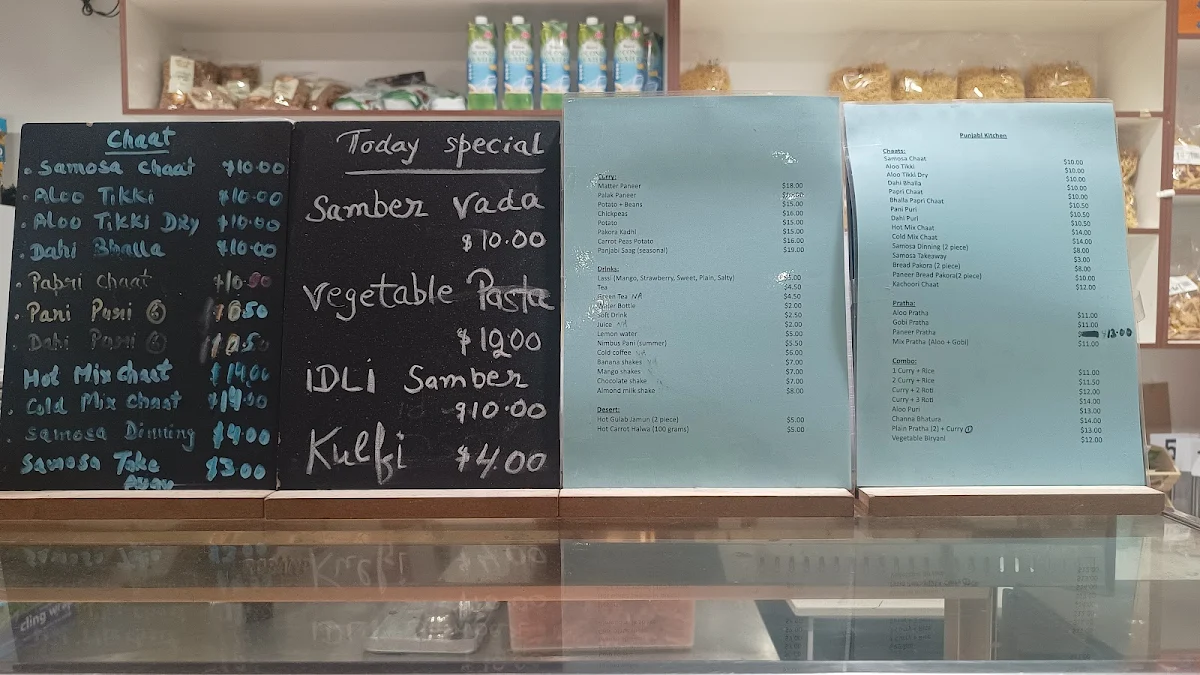 Chaat
Samosa Chaat $10.00
Aloo Tikki $10.00
Aloo Tikki Dry $10.00
Dahi Bhalla $10.00
Papri Chaat $10.50
Pani Puri 6 10.50
Dahi Puri 6 10.50
Hot Mix Chaat $14.00
Cold Mix Chaat $14.00
Samosa Dinning $9.00
Samosa Take $3.00
Away
Today special
Samber Vada
$10.00
Vegetable Pasta
$12.00
iDLi Samber
$10.00
Kulfi $4.00
Curry:
Matter Paneer $18.00
Palak Paneer
Potato + Beans $15.00
Chickpeas $16.00
Potato $15.00
Pakora Kadhi $15.00
Carrot Peas Potato $16.00
Panjabi Saag (seasonal) $19.00
Drinks:
Lassi (Mango, Strawberry, Sweet, Plain, Salty) $5.00
Tea $4.50
Green Tea NA $4.50
Water Bottle $2.00
Soft Drink $2.50
Juice NA $2.00
Lemon water $5.00
Nimbus Pani (summer) $5.50
Cold coffee NA $6.00
Banana shakes NA $7.00
Mango shakes $7.00
Chocolate shake $7.00
Almond milk shake $8.00
Desert:
Hot Gulab Jamun (2 piece) $5.00
Hot Carrot Halwa (100 grams) $5.00
Punjabi Kitchen
Chaats:
Samosa Chaat $10.00
Aloo Tikki $10.00
Aloo Tikki Dry $10.00
Dahi Bhalla $10.00
Papri Chaat $10.00
Bhalla Papri Chaat $10.50
Pani Puri $10.50
Dahi Puri $10.50
Hot Mix Chaat $14.00
Cold Mix Chaat $14.00
Samosa Dinning (2 piece) $8.00
Samosa Takeaway $3.00
Bread Pakora (2 piece) $8.00
Paneer Bread Pakora(2 piece) $10.00
Kachoori Chaat $12.00
Pratha:
Aloo Pratha $11.00
Gobi Pratha $11.00
Paneer Pratha $13.00
Mix Pratha (Aloo + Gobi) $11.00
Combo:
1 Curry + Rice $11.00
2 Curry + Rice $11.50
Curry + 2 Roti $12.00
Curry + 3 Roti $14.00
Aloo Puri $13.00
Channa Bhatura $14.00
Plain Pratha (2) + Curry 1 $13.00
Vegetable Biryani $12.00
cling wrap